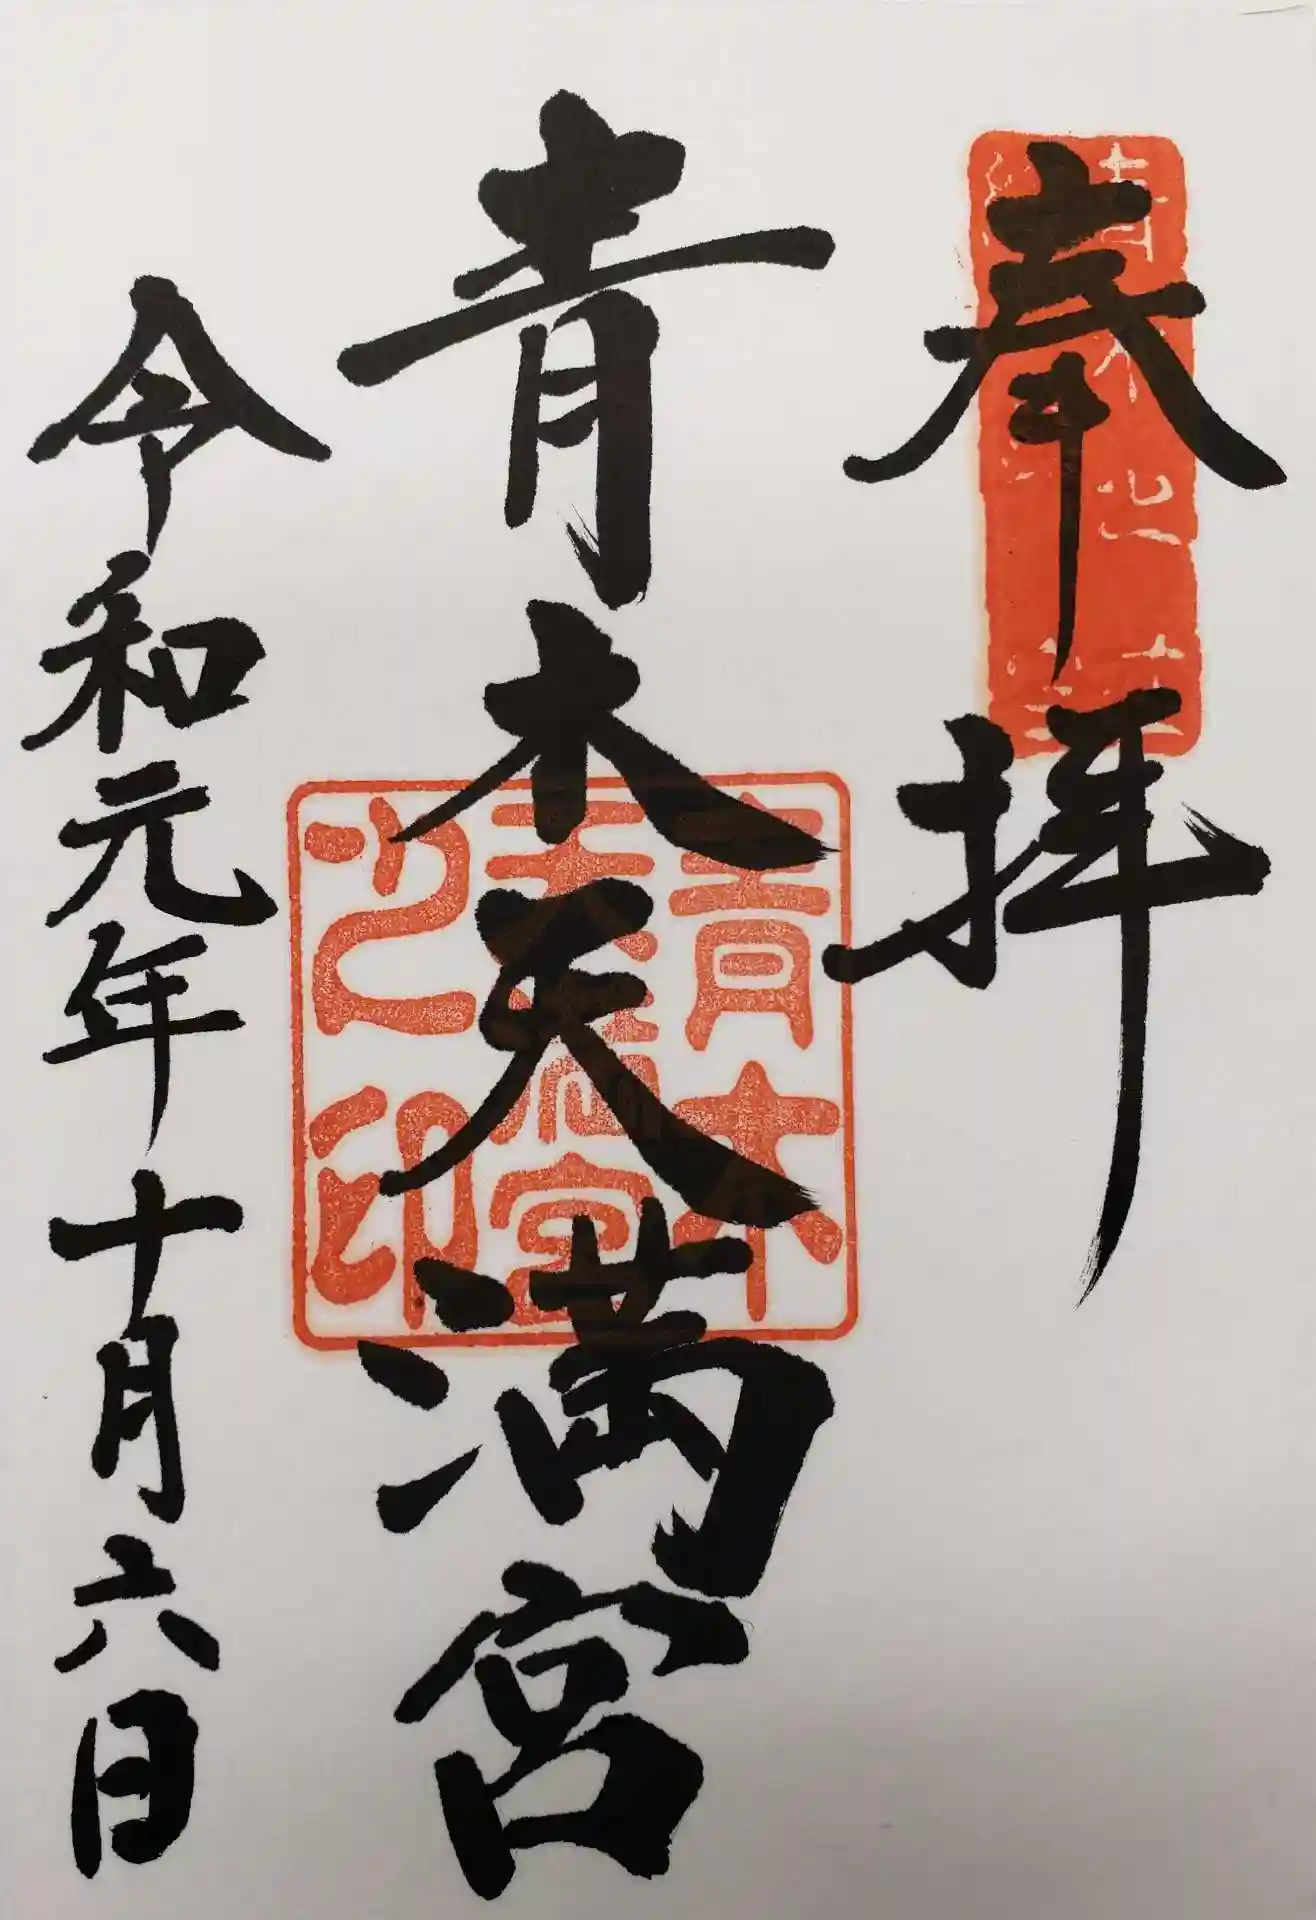 奉拝
青木天満宮
青木天満宮之印
令和元年十月六日